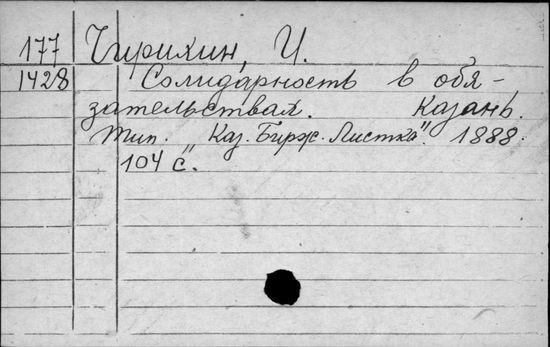 177 Чирихин, И.
1428 Солидарность в обя-
зательствах. Казань.
Тип. "Каз. Бирж. Листка". 1888.
104 с.